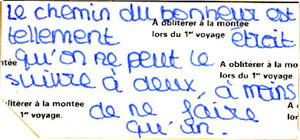 Le chemin du bonheur est
A oblitérer à la montée
tellement étroit
lors du 1er voyage.
ntée A oblitérer à la montée
qu'on ne peut le
lors du 1er voyage.
suivre à deux, à moins
blitérer à la montée
de ne faire
lors du 1er voyage.
qu'un.